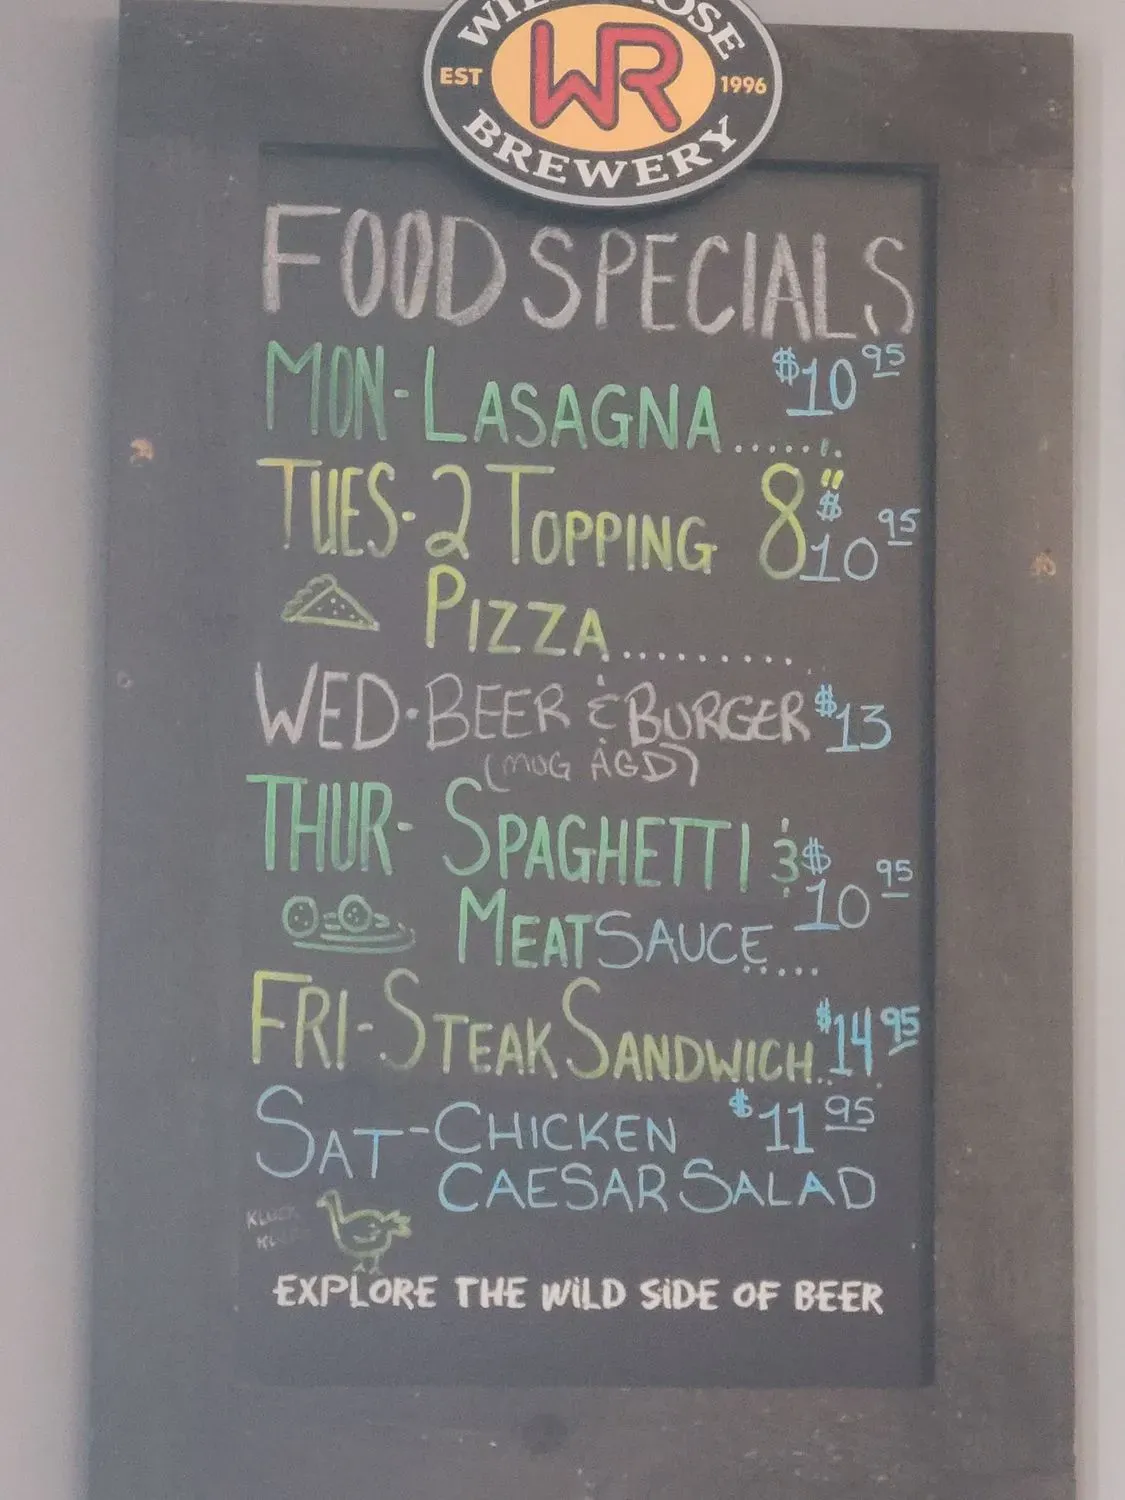 WILD ROSE
EST WR 1996
BREWERY
FOOD SPECIALS
MON-LASAGNA...... $10 95
TUES-2 TOPPING 8" $10 95
PIZZA..........
WED-BEER & BURGER $13
(MUG AGD)
THUR- SPAGHETTI & $10 95
MEATSAUCE.....
FRI-STEAK SANDWICH.. $14 95
SAT-CHICKEN $11 95
CAESAR SALAD
EXPLORE THE WILD SIDE OF BEER